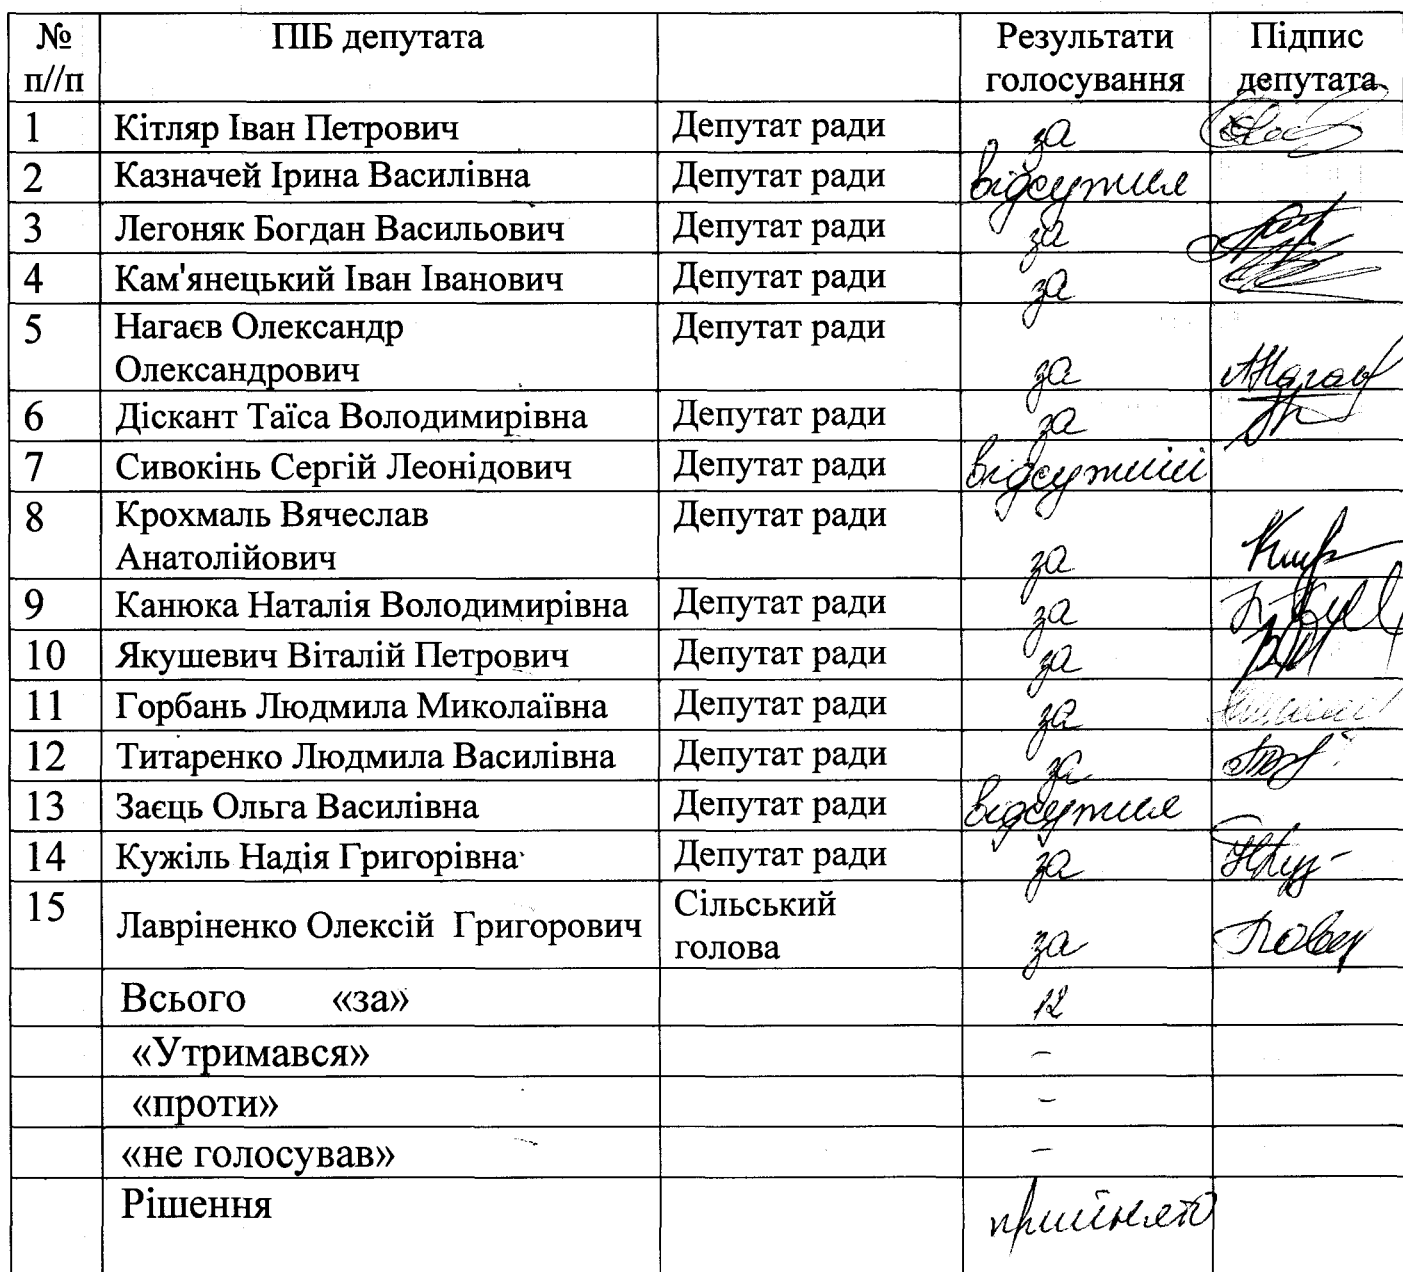 № п//п ПІБ депутата Результати голосування Підпис депутата
1 Кітляр Іван Петрович Депутат ради за
2 Казначей Ірина Василівна Депутат ради відсутня
3 Легоняк Богдан Васильович Депутат ради за
4 Кам'янецький Іван Іванович Депутат ради за
5 Нагаєв Олександр Олександрович Депутат ради за
6 Діскант Таїса Володимирівна Депутат ради за
7 Сивокінь Сергій Леонідович Депутат ради відсутній
8 Крохмаль Вячеслав Анатолійович Депутат ради за
9 Канюка Наталія Володимирівна Депутат ради за
10 Якушевич Віталій Петрович Депутат ради за
11 Горбань Людмила Миколаївна Депутат ради за
12 Титаренко Людмила Василівна Депутат ради за
13 Заєць Ольга Василівна Депутат ради відсутня
14 Кужіль Надія Григорівна Депутат ради за
15 Лавріненко Олексій Григорович Сільський голова за
Всього «за» 12
«Утримався» -
«проти» -
«не голосував» -
Рішення прийнято